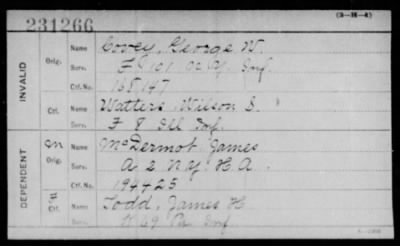 231266
(3-H-4)
INVALID
Orig. Name Covey, George W.
Serv. F 101 N.Y. Inf.
Ctf. No. 168,147
Ctf. Name Watters, Wilson S.
Serv. F 8 Ill Inf.
DEPENDENT
Orig. Name McDermot, James
Serv. A 2 N.Y. H.A.
Ctf. No. 194425
Ctf. Name Todd, James H.
Serv. K 69 Pa Inf